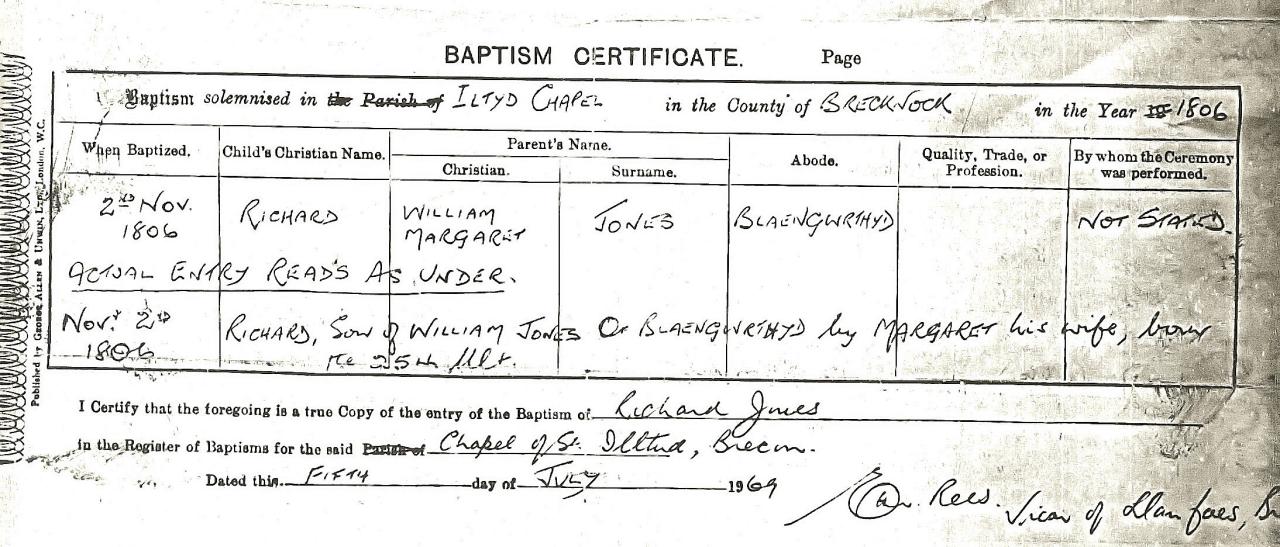 BAPTISM CERTIFICATE. Page
Baptism solemnised in the Parish of ILTYD CHAPEL in the County of BRECKNOCK in the Year 18 1806
When Baptized. Child's Christian Name. Parent's Name. Abode. Quality, Trade, or Profession. By whom the Ceremony was performed.
Christian. Surname.
2ND NOV. 1806 RICHARD WILLIAM MARGARET JONES BLAENGWRTHYD NOT STATED.
ACTUAL ENTRY READS AS UNDER.
Nov. 2nd RICHARD, Son of WILLIAM JONES Of BLAENGWRTHYD by MARGARET his wife, born
1806 the 25th Ult.
I Certify that the foregoing is a true Copy of the entry of the Baptism of Richard Jones
in the Register of Baptisms for the said Parish of Chapel of St. Illtud, Brecon.
Dated this FIFTH day of JULY 1969
Rees. Vicar of Llanfaes, Br
Published by GEORGE ALLEN & UNWIN, LTD., London, W.C.